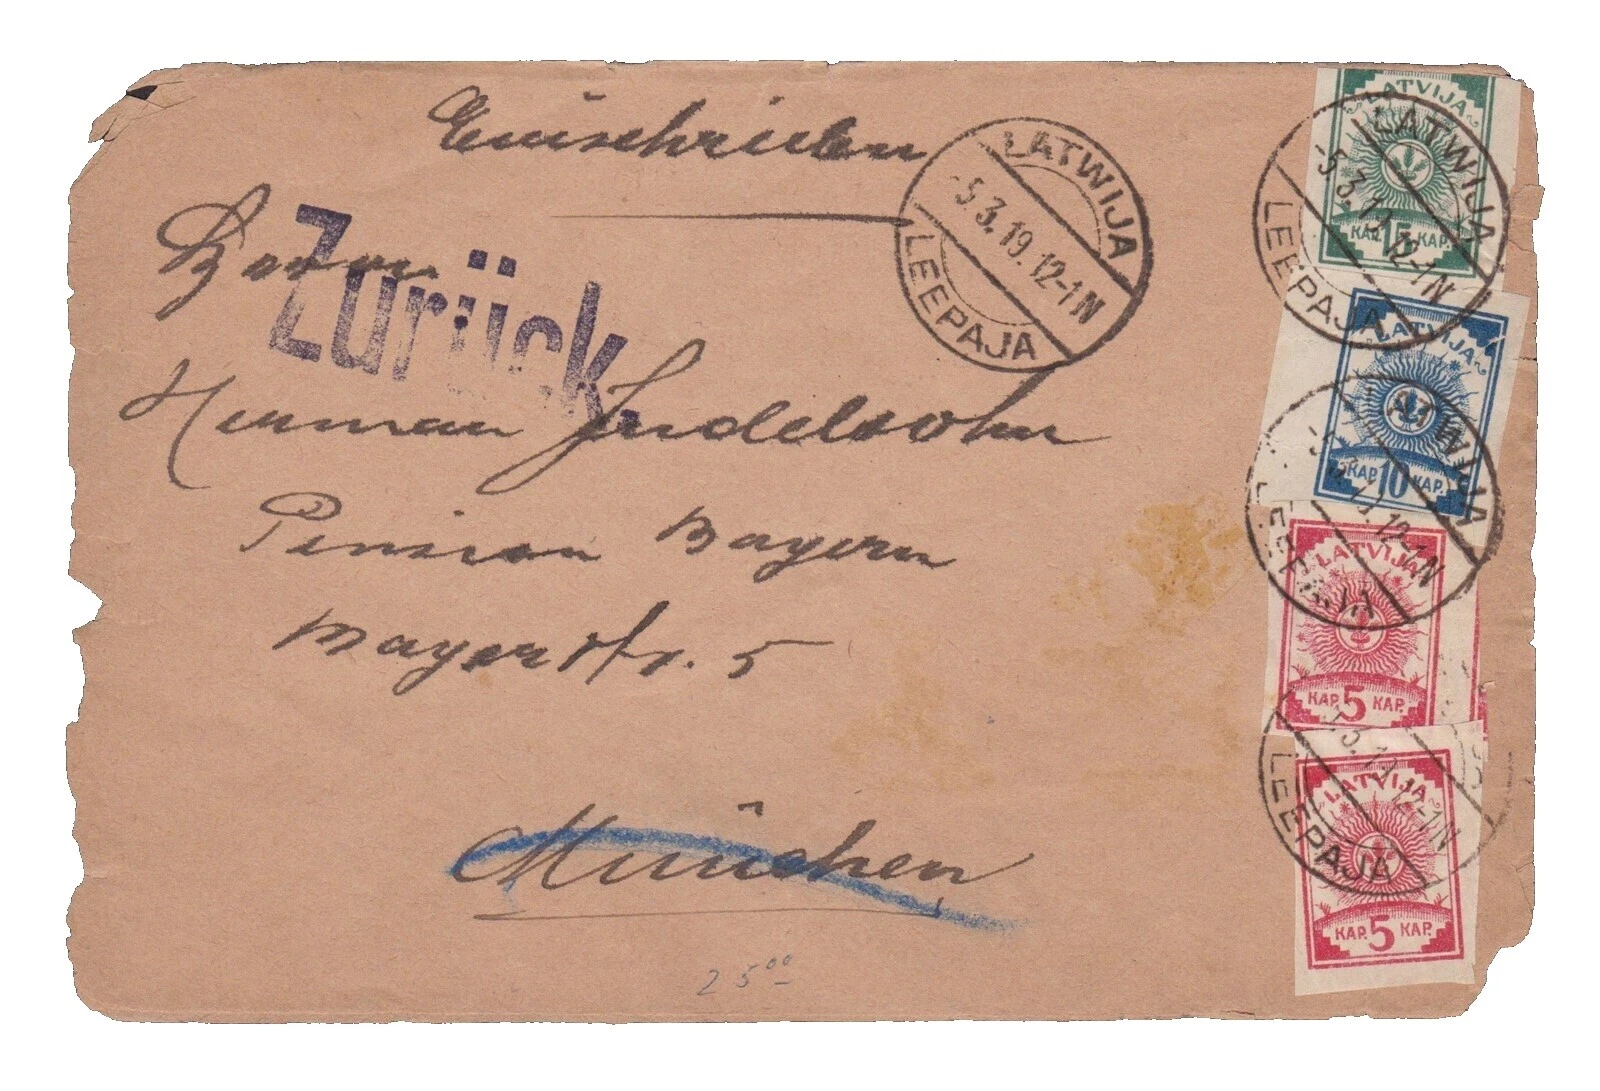 Einschreiben
Herrn
Zurück.
Herman Judelsohn
Pension Bayern
Bayerstr. 5
München
25 00
LATWIJA
-5.3.19.12-1N
LEEPAJA
LATVIJA
KAP. 15 KAP.
LATWIJA
-5.3.19.12-1N
LEEPAJA
LATVIJA
KAP. 10 KAP.
LATWIJA
12-1N
LATVIJA
KAP. 5 KAP.
12-1N
LEEPAJA
LATVIJA
KAP. 5 KAP.